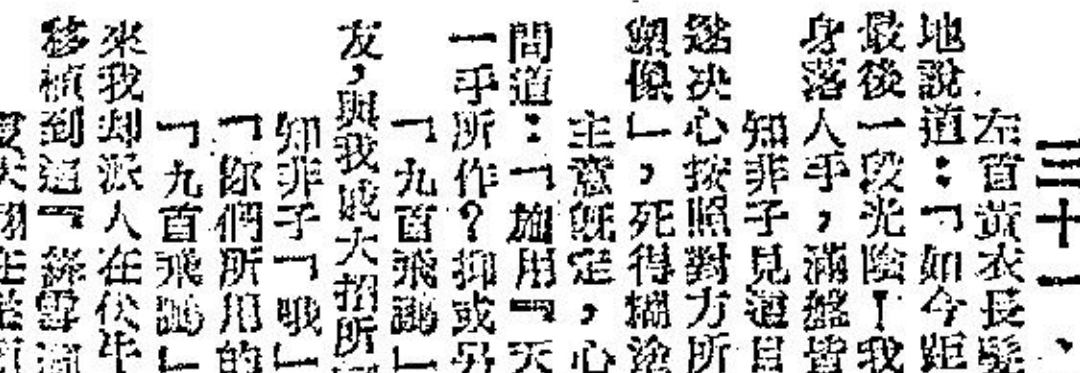 三十一、
左首黃衣長髮
地說道：「如今距
最後一段光陰！我
身落人手，滿盤皆
知非子見這
遂決心按照對方所
像」，死得糊塗
主意既定，心
問道：「施用『天
一手所作？抑或另
「九首飛鵬」
友，與我成大招所
知非子「哦」
「你們所用的
「九首飛鵬」
來我却派人在伏牛
移植到這『